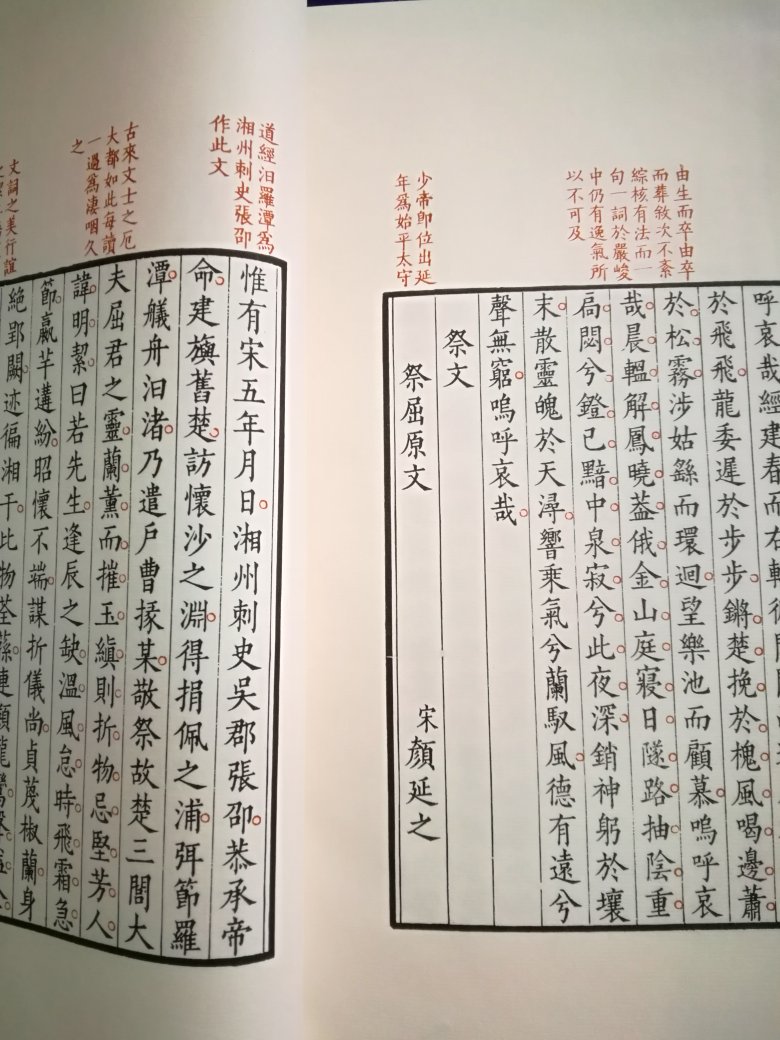 由生而卒由卒
而葬敘次不紊
綜核有法而一
句一詞於嚴峻
中仍有逸氣所
以不可及
少帝即位出延
年為始平太守
呼哀哉經建春而右轉循
於飛飛龍委遲於步步鏘楚挽於槐風喝邊蕭
於松霧涉姑繇而環迴望樂池而顧慕嗚呼哀
哉晨轀解鳳曉葢俄金山庭寢日隧路抽陰重
扃閟兮鐙已黯中泉寂兮此夜深銷神躬於壤
末散靈魄於天潯響乘氣兮蘭馭風德有遠兮
聲無窮嗚呼哀哉
祭文
祭屈原文 宋顏延之
道經汨羅潭為
湘州刺史張邵
作此文
古來文士之厄
大都如此每讀
一過為淒咽久
之
文詞之美行誼
惟有宋五年月日湘州刺史吳郡張邵恭承帝
命建旟舊楚訪懷沙之淵得捐佩之浦弭節羅
潭艤舟汨渚乃遣戶曹掾某敬祭故楚三閭大
夫屈君之靈蘭薰而摧玉縝則折物忌堅芳人
諱明絜曰若先生逢辰之缺溫風怠時飛霜急
節嬴芊遘紛昭懷不端謀折儀尚貞蔑椒蘭身
絕郢闕迹徧湘干此物荃蓀連類龍鸞聲